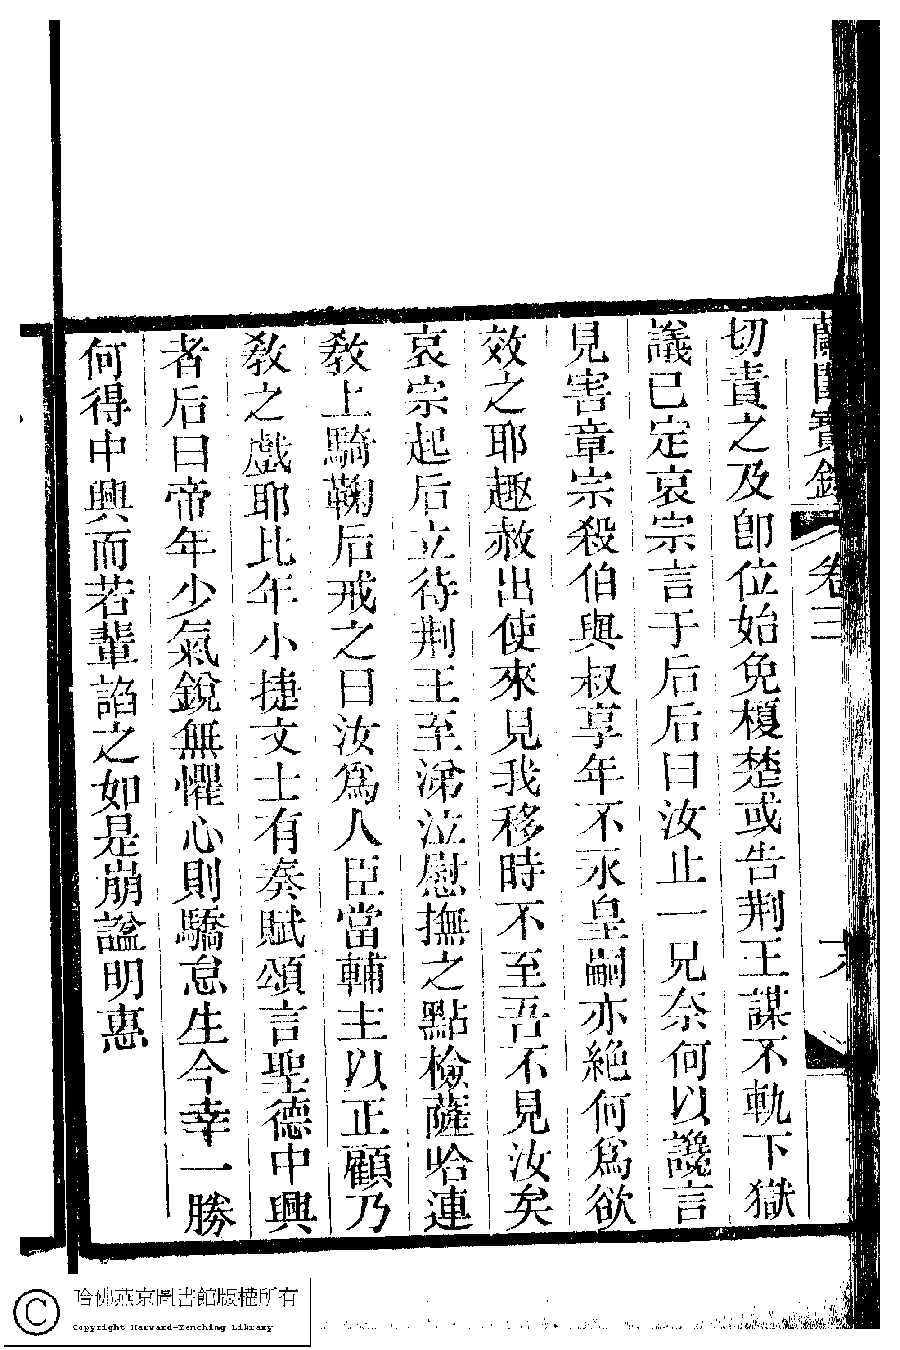 蘭閨寶錄 卷三
切責之及卽位始免榎楚或告荆王謀不軌下獄
議已定哀宗言于后后曰汝止一兄奈何以讒言
見害章宗殺伯與叔享年不永皇嗣亦絕何爲欲
效之耶趣赦出使來見我移時不至吾不見汝矣
哀宗起后立待荆王至涕泣慰撫之點檢薩哈連
敎上騎鞠后戒之曰汝爲人臣當輔主以正顧乃
敎之戲耶比年小捷文士有奏賦頌言聖德中興
者后曰帝年少氣銳無懼心則驕怠生今幸一勝
何得中興而若輩諂之如是崩謚明惠
哈佛燕京圖書館版權所有
Copyright Harvard-Yenching Library